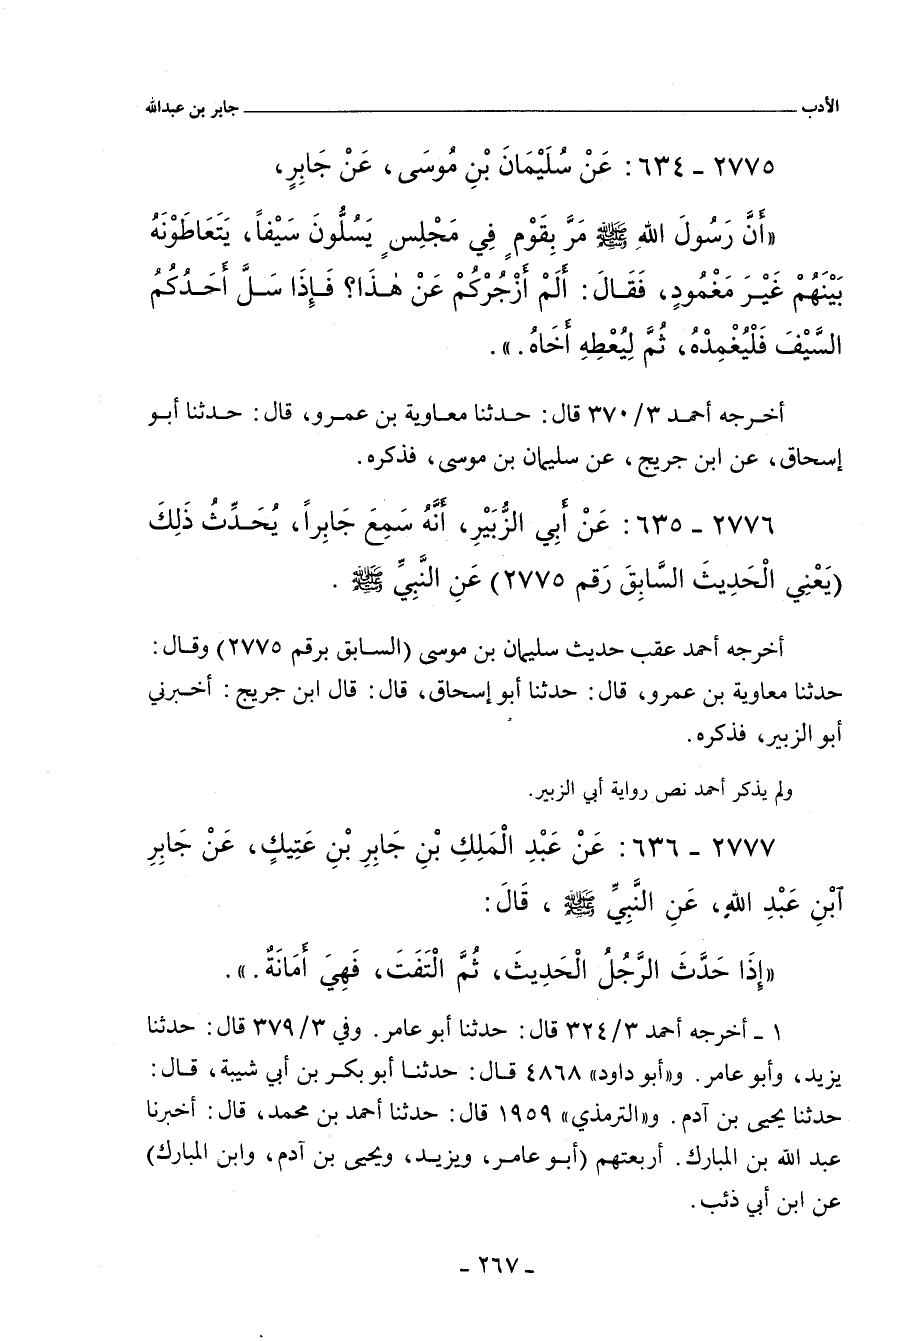 الأدب ـــــــــــــــــــــــــــــــــــــــ جابر بن عبدالله
٢٧٧٥ ـ ٦٣٤ : عَنْ سُلَيْمَانَ بْنِ مُوسَى ، عَنْ جَابِرٍ ،
«أَنَّ رَسُولَ اللهِ ﷺ مَرَّ بِقَوْمٍ فِي مَجْلِسٍ يَسُلُّونَ سَيْفاً، يَتَعَاطَوْنَهُ
بَيْنَهُمْ غَيْرَ مَغْمُودٍ، فَقَالَ : أَلَمْ أَزْجُرْكُمْ عَنْ هٰذَا؟ فَإِذَا سَلَّ أَحَدُكُمُ
السَّيْفَ فَلْيُغْمِدْهُ، ثُمَّ لِيُعْطِهِ أَخَاهُ . » .
أخرجه أحمد ٣/ ٣٧٠ قال : حدثنا معاوية بن عمرو، قال : حدثنا أبو
إسحاق، عن ابن جريج ، عن سليمان بن موسى، فذكره .
٢٧٧٦ ـ ٦٣٥ : عَنْ أَبِي الزُّبَيْرِ، أَنَّهُ سَمِعَ جَابِراً، يُحَدِّثُ ذَلِكَ
(يَعْنِي الْحَدِيثَ السَّابِقَ رَقم ٢٧٧٥) عَنِ النَّبِيِّ ﷺ .
أخرجه أحمد عقب حديث سليمان بن موسى (السابق برقم ٢٧٧٥) وقال :
حدثنا معاوية بن عمرو، قال : حدثنا أبو إسحاق، قال : قال ابن جريج : أخبرني
أبو الزبير، فذكره .
ولم يذكر أحمد نص رواية أبي الزبير.
٢٧٧٧ ـ ٦٣٦ : عَنْ عَبْدِ الْمَلِكِ بْنِ جَابِرِ بْنِ عَتِيكٍ، عَنْ جَابِرِ
ٱبْنِ عَبْدِ اللهِ، عَنِ النَّبِيِّ ﷺ ، قَالَ :
«إِذَا حَدَّثَ الرَّجُلُ الْحَدِيثَ، ثُمَّ الْتَفَتَ، فَهِيَ أَمَانَةٌ . » .
١ ـ أخرجه أحمد ٣/ ٣٢٤ قال : حدثنا أبو عامر . وفي ٣/ ٣٧٩ قال : حدثنا
يزيد، وأبو عامر. و«أبو داود» ٤٨٦٨ قال : حدثنا أبو بكر بن أبي شيبة، قال :
حدثنا يحيى بن آدم . و«الترمذي» ١٩٥٩ قال : حدثنا أحمد بن محمد، قال : أخبرنا
عبد الله بن المبارك. أربعتهم (أبو عامر، ويزيد، ويحيى بن آدم، وابن المبارك)
عن ابن أبي ذئب .
ـ ٢٦٧ ـ